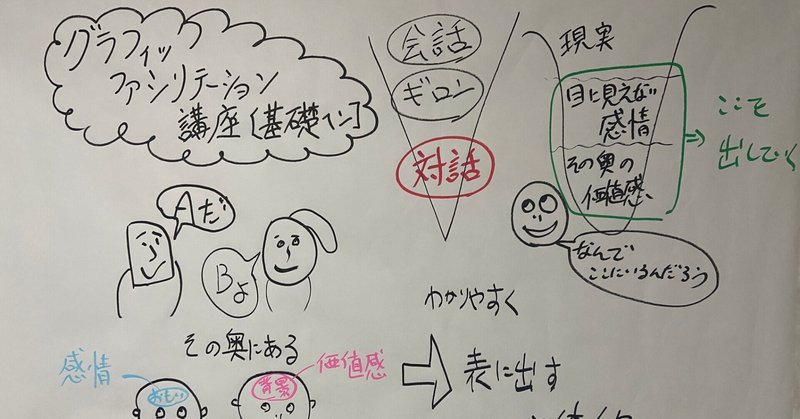 グラフィック
ファシリテーション
講座[基礎てん]
会話
ギロン
対話
現実
目に見えない
感情
その奥の
価値感
ここを
出していく
Aだ
Bよ
なんで
ここにいるんだろう
その奥にある
感情
おもい
背景
価値感
わかりやすく
表に出す